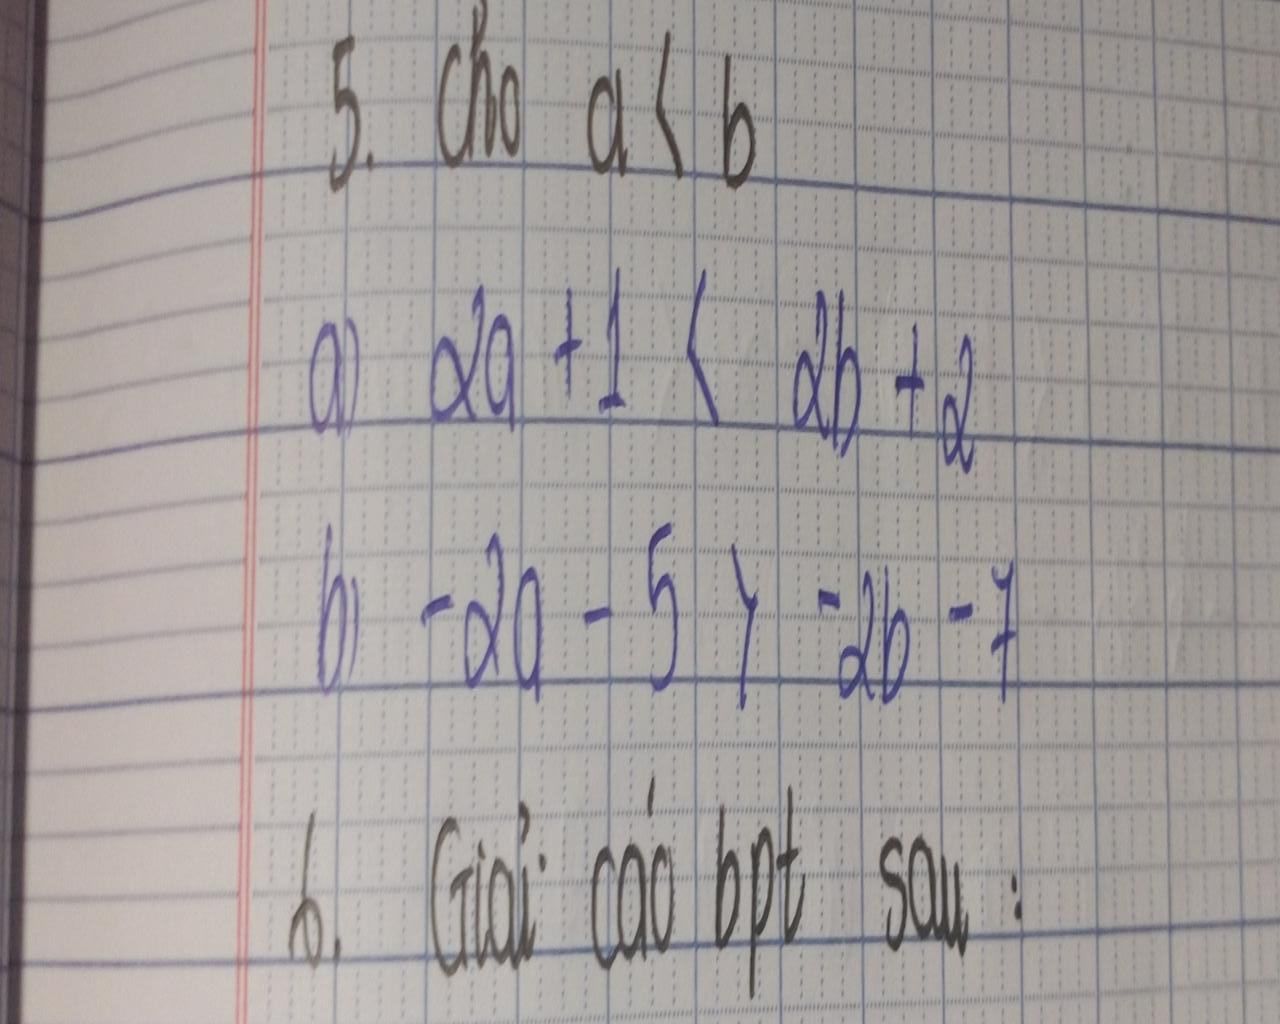 5. Cho a < b
a) 2a + 1 < 2b + 2
b) -2a - 5 > -2b - 7
6. Giải các bpt sau :